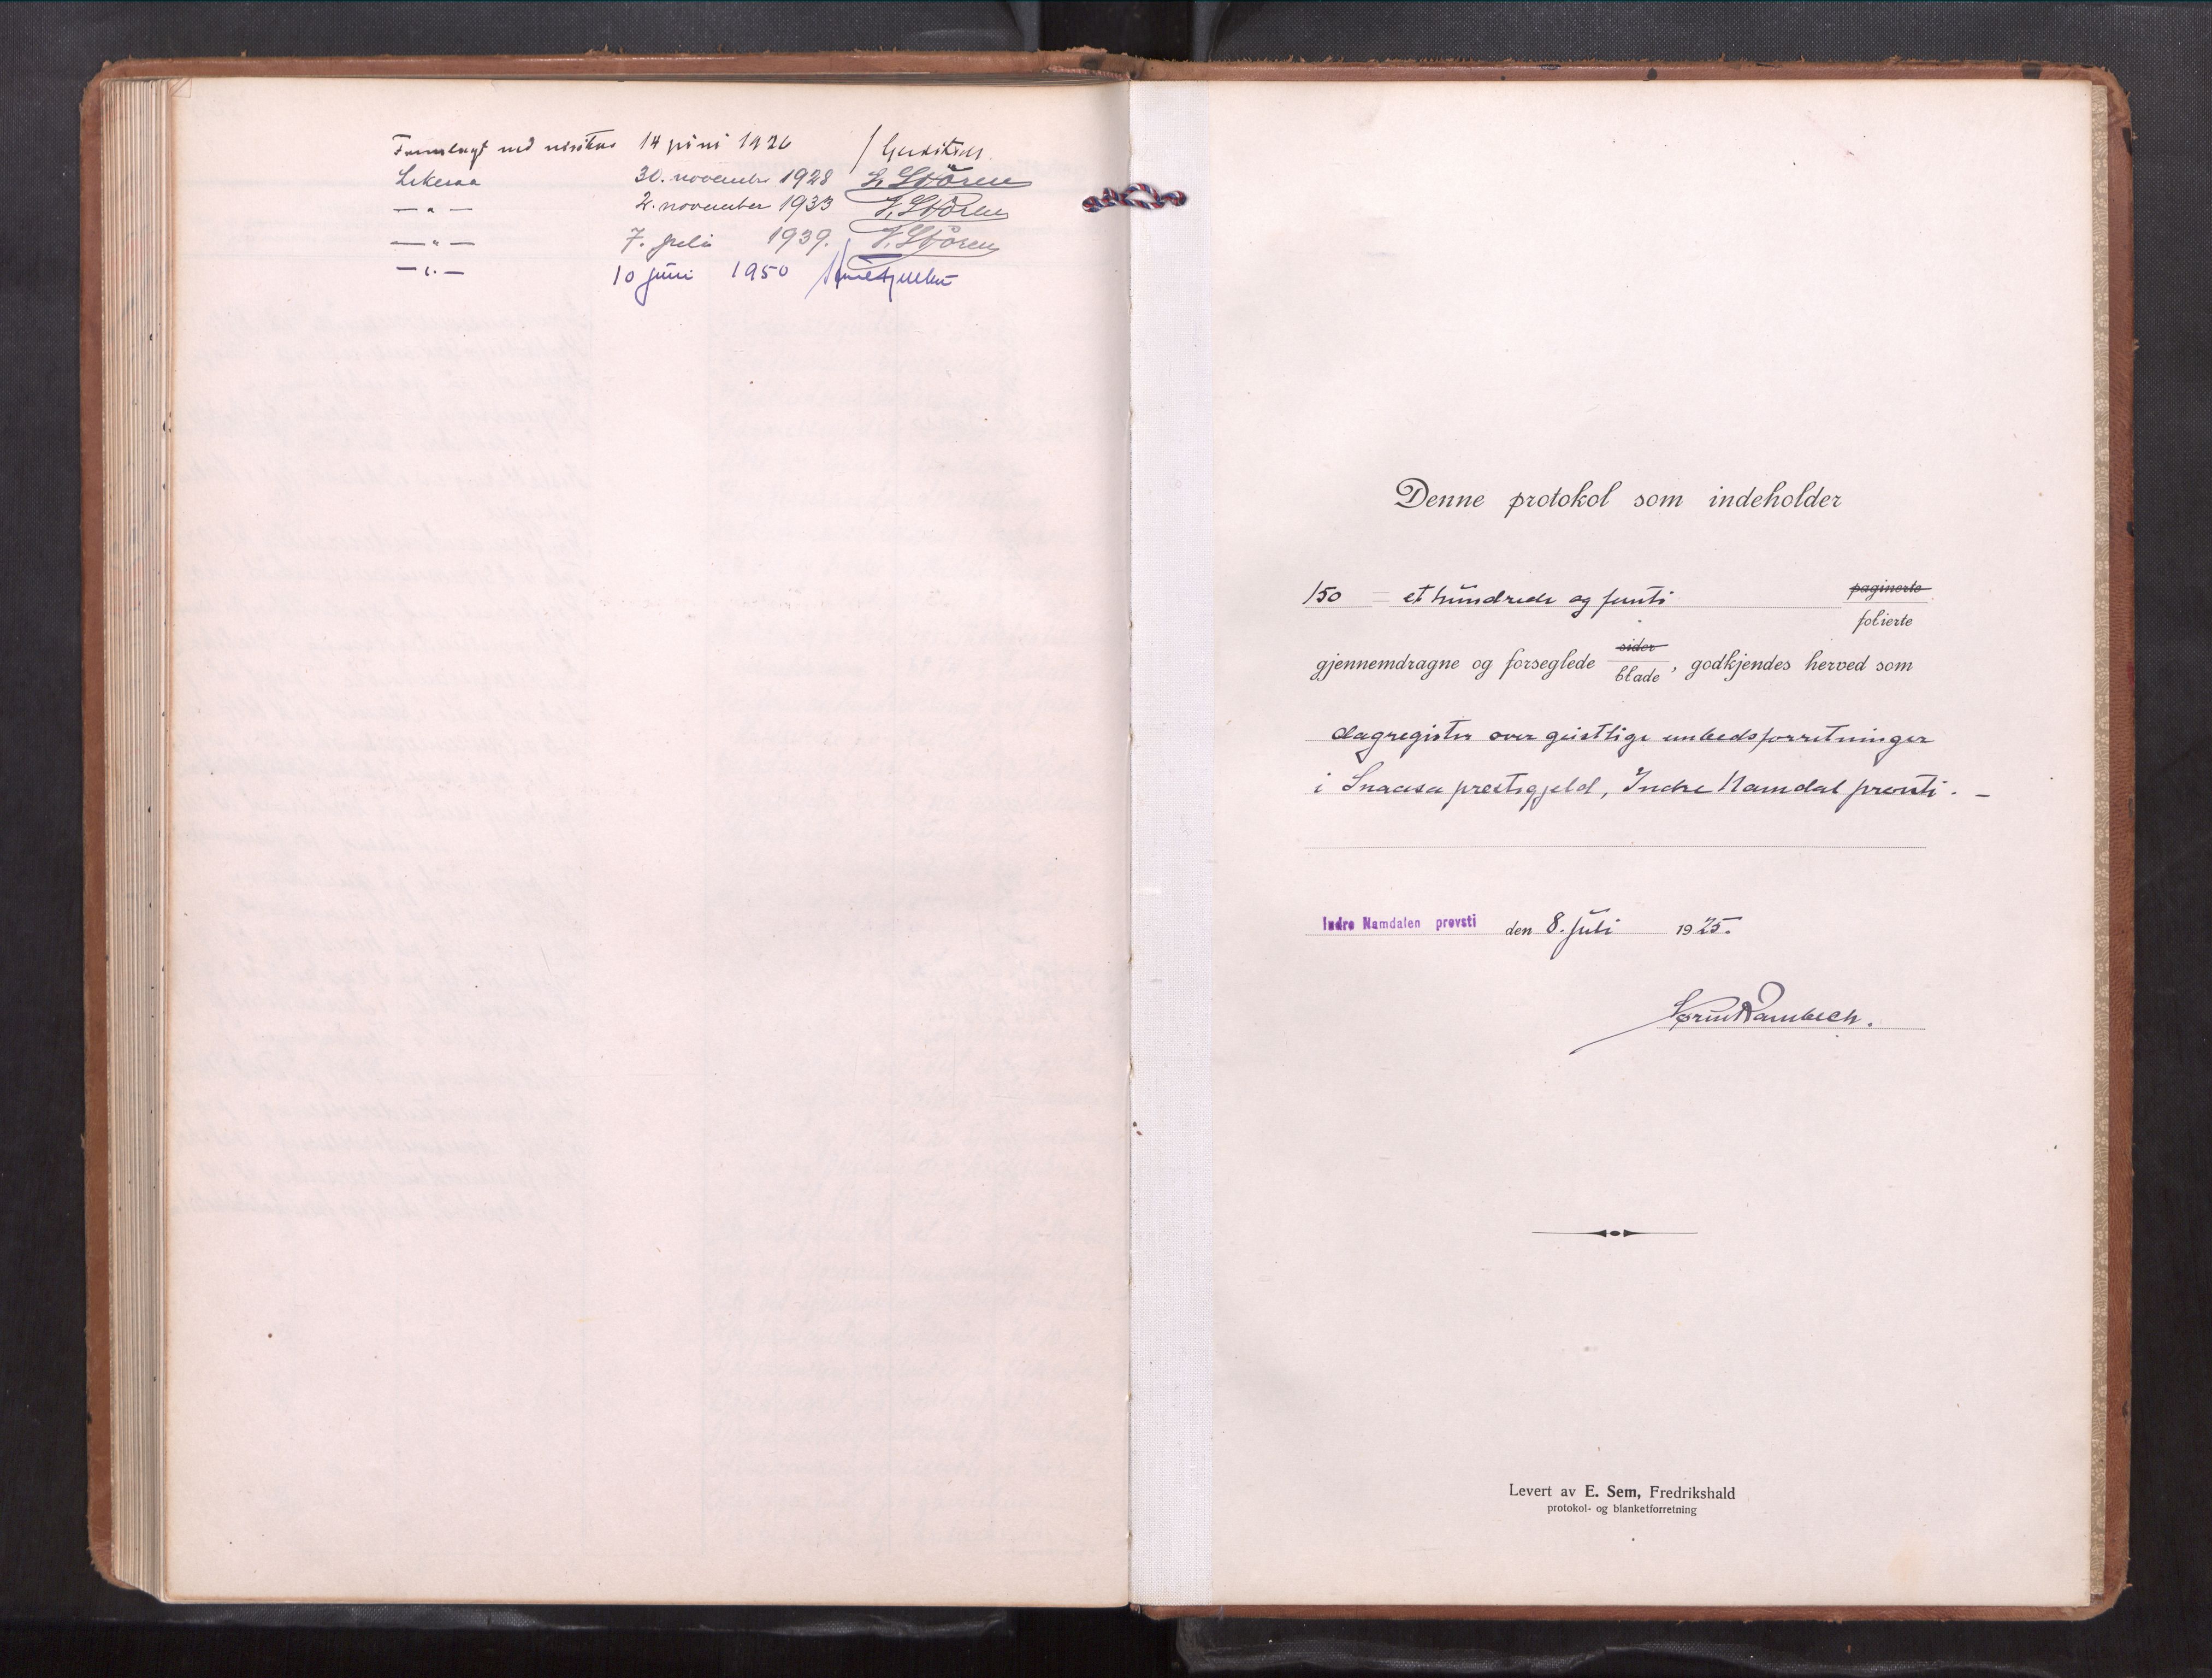 Fremlagt ved visitas 14 juni 1926
Likesaa 30. november 1928 J. Støren
— " — 2. november 1933 J. Støren
— " — 7. juli 1939. J. Støren
— " — 10 juni 1950
Denne protokol som indeholder
150 = et hundrede og femti paginerte
folierte
gjennemdragne og forseglede sider
blade, godkjendes herved som
dagregister over geistlige embedsforretninger
i Snaasa prestegjeld, Indre Namdal prosti. —
Indre Namdalen provsti den 8. juli 1925.
Sørin Rambech.
Levert av E. Sem, Fredrikshald
protokol- og blanketforretning